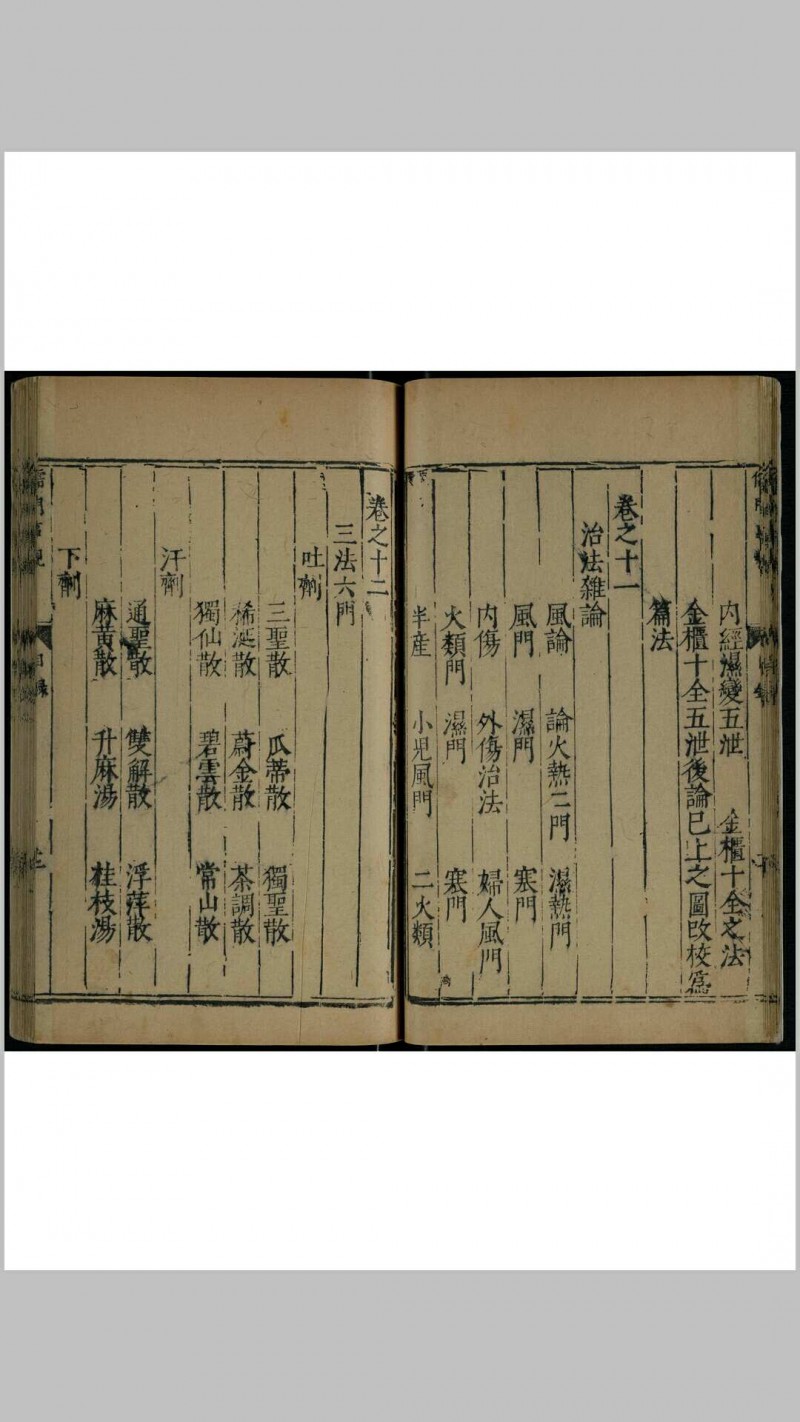 內經濕變五泄　金櫃十全之法
金櫃十全五泄後論已上之圖改校爲
篇法
卷之十一
治法雜論
風論　論火熱二門　濕熱門
風門　濕門　寒門
内傷　外傷治法　婦人風門
火類門　濕門　寒門
半産　小兒風門　二火類
卷之十二
三法六門
吐劑
三聖散　瓜蒂散　獨聖散
稀涎散　蔚金散　茶調散
獨仙散　碧雲散　常山散
汗劑
通聖散　雙解散　浮萍散
麻黄散　升麻湯　桂枝湯
下劑